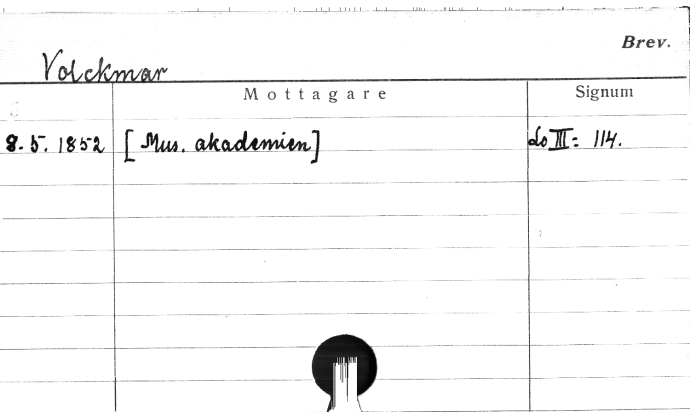 Brev.
Volckmar
Mottagare Signum
8.5.1852 [Mus. akademien] Lo III: 114.